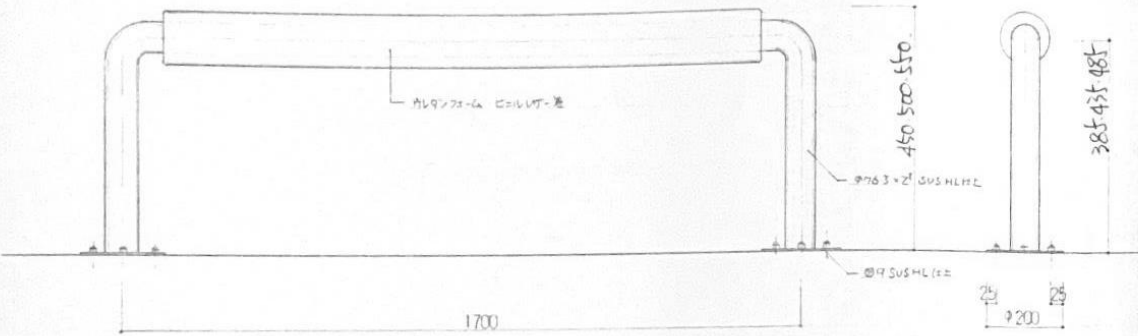 ウレタンフォーム ビニルレザー巻
450 500 550
385 435 485
φ76.3×2t SUS HL仕上
⌀9 SUS HL仕上
25
25
φ200
1700